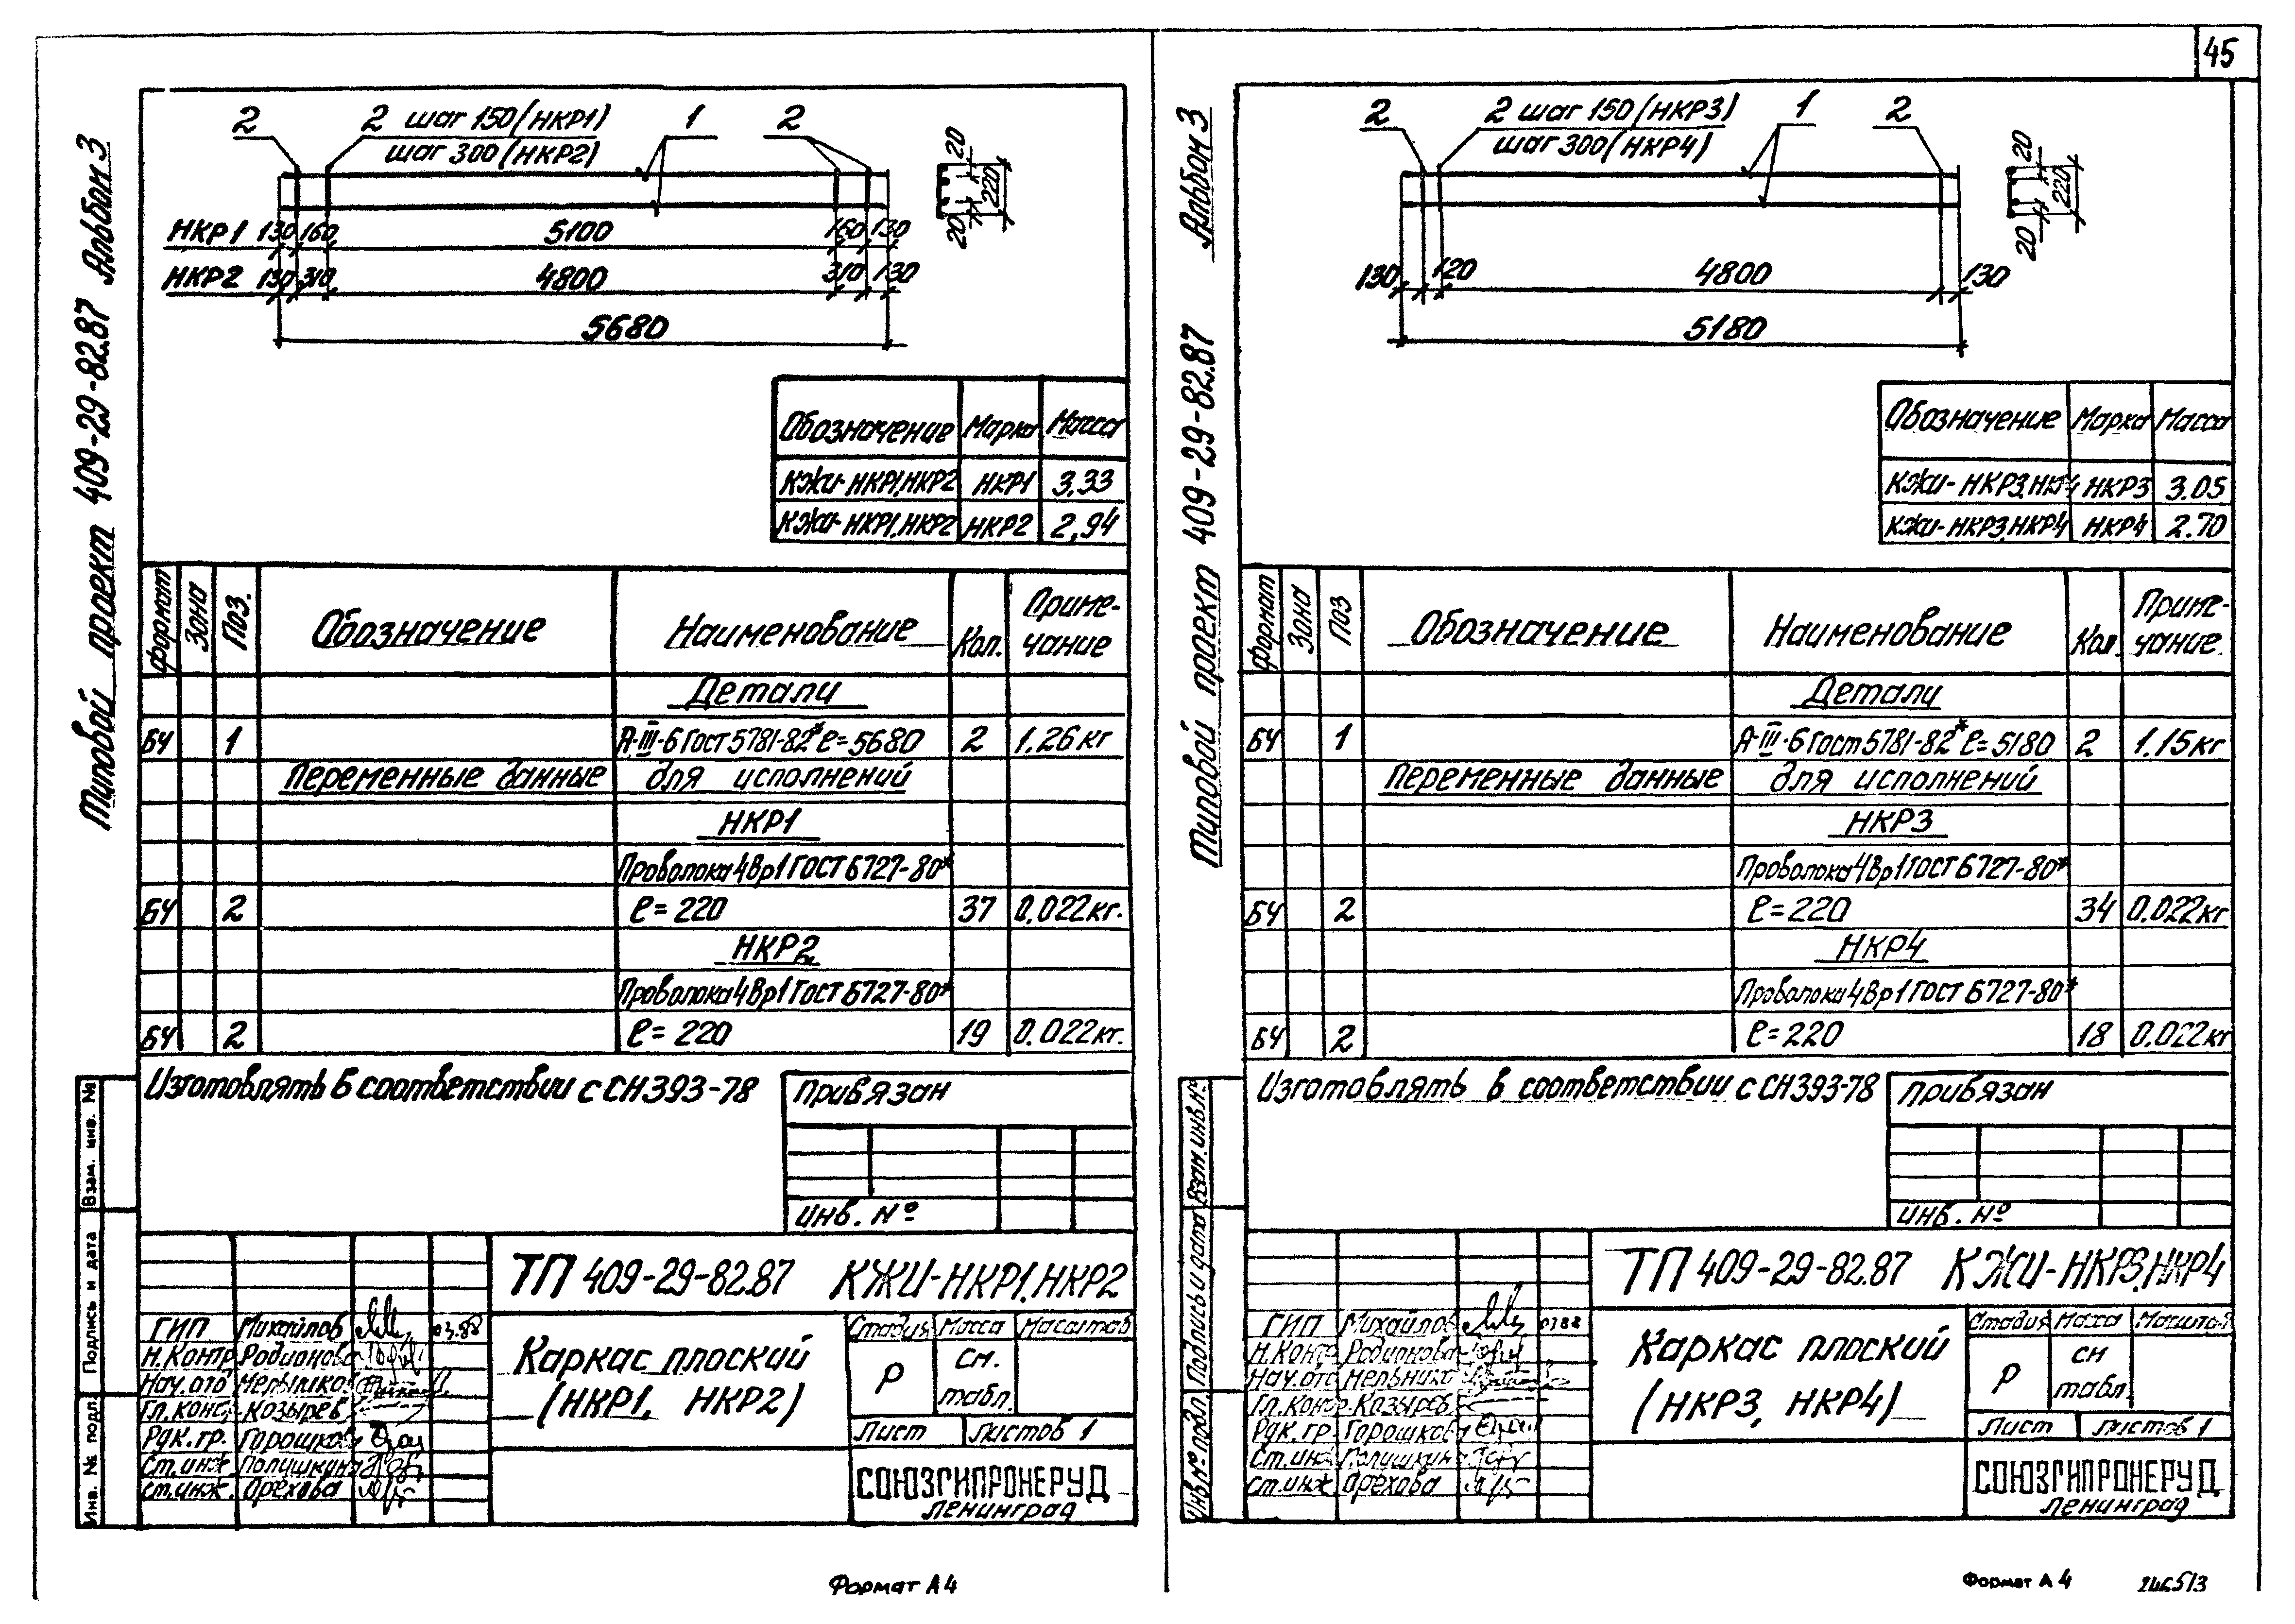 45
Типовой проект 409-29-82.87 Альбом 3
2
2 шаг 150 (НКР1)
шаг 300 (НКР2)
1
2
20
220
20
НКР1 130 160 5100 160 130
НКР2 130 310 4800 310 130
5680
Обозначение Марка Масса
КЖИ-НКР1,НКР2 НКР1 3,33
КЖИ-НКР1,НКР2 НКР2 2,94
Формат Зона Поз. Обозначение Наименование Кол. Приме-
чание
Детали
БЧ 1 А-III-6 Гост 5781-82* ℓ=5680 2 1.26 кг
Переменные данные для исполнений
НКР1
Проволока 4Вр1 ГОСТ 6727-80*
БЧ 2 ℓ=220 37 0.022 кг.
НКР2
Проволока 4Вр1 ГОСТ 6727-80*
БЧ 2 ℓ=220 19 0.022 кг.
Изготовлять в соответствии с СН 393-78
Привязан
Инв. №
Инв. № подл. Подпись и дата Взам. инв. №
ТП 409-29-82.87 КЖИ-НКР1.НКР2
ГИП Михайлов 03.88
Н.Контр Родионова
Нач.отд Мельников
Гл.конс. Козырев
Рук.гр. Горошков
Ст.инж. Полушкина
Ст.инж. Орехова
Каркас плоский
(НКР1, НКР2)
Стадия Масса Масштаб
Р см.
табл.
Лист Листов 1
СОЮЗГИПРОНЕРУД
Ленинград
Формат А4
Типовой проект 409-29-82.87 Альбом 3
2
2 шаг 150 (НКР3)
шаг 300 (НКР4)
1
2
20
220
20
130 120 4800 130
5180
Обозначение Марка Масса
КЖИ-НКР3,НКР4 НКР3 3.05
КЖИ-НКР3,НКР4 НКР4 2.70
Формат Зона Поз Обозначение Наименование Кол. Приме-
чание
Детали
БЧ 1 А-III-6 Гост 5781-82* ℓ=5180 2 1.15 кг
Переменные данные для исполнений
НКР3
Проволока 4Вр1 ГОСТ 6727-80*
БЧ 2 ℓ=220 34 0.022 кг
НКР4
Проволока 4Вр1 ГОСТ 6727-80*
БЧ 2 ℓ=220 18 0.022 кг
Изготовлять в соответствии с СН 393-78
Привязан
Инв. №
Инв № подл. Подпись и дата Взам. инв. №
ТП 409-29-82.87 КЖИ-НКР3.НКР4
ГИП Михайлов 03.88
Н.Конт Родионова
Нач.отд Мельников
Гл.конс. Козырев
Рук.гр. Горошков
Ст.инж. Полушкина
Ст.инж. Орехова
Каркас плоский
(НКР3, НКР4)
Стадия Масса Масштаб
Р см
табл.
Лист Листов 1
СОЮЗГИПРОНЕРУД
Ленинград
Формат А4